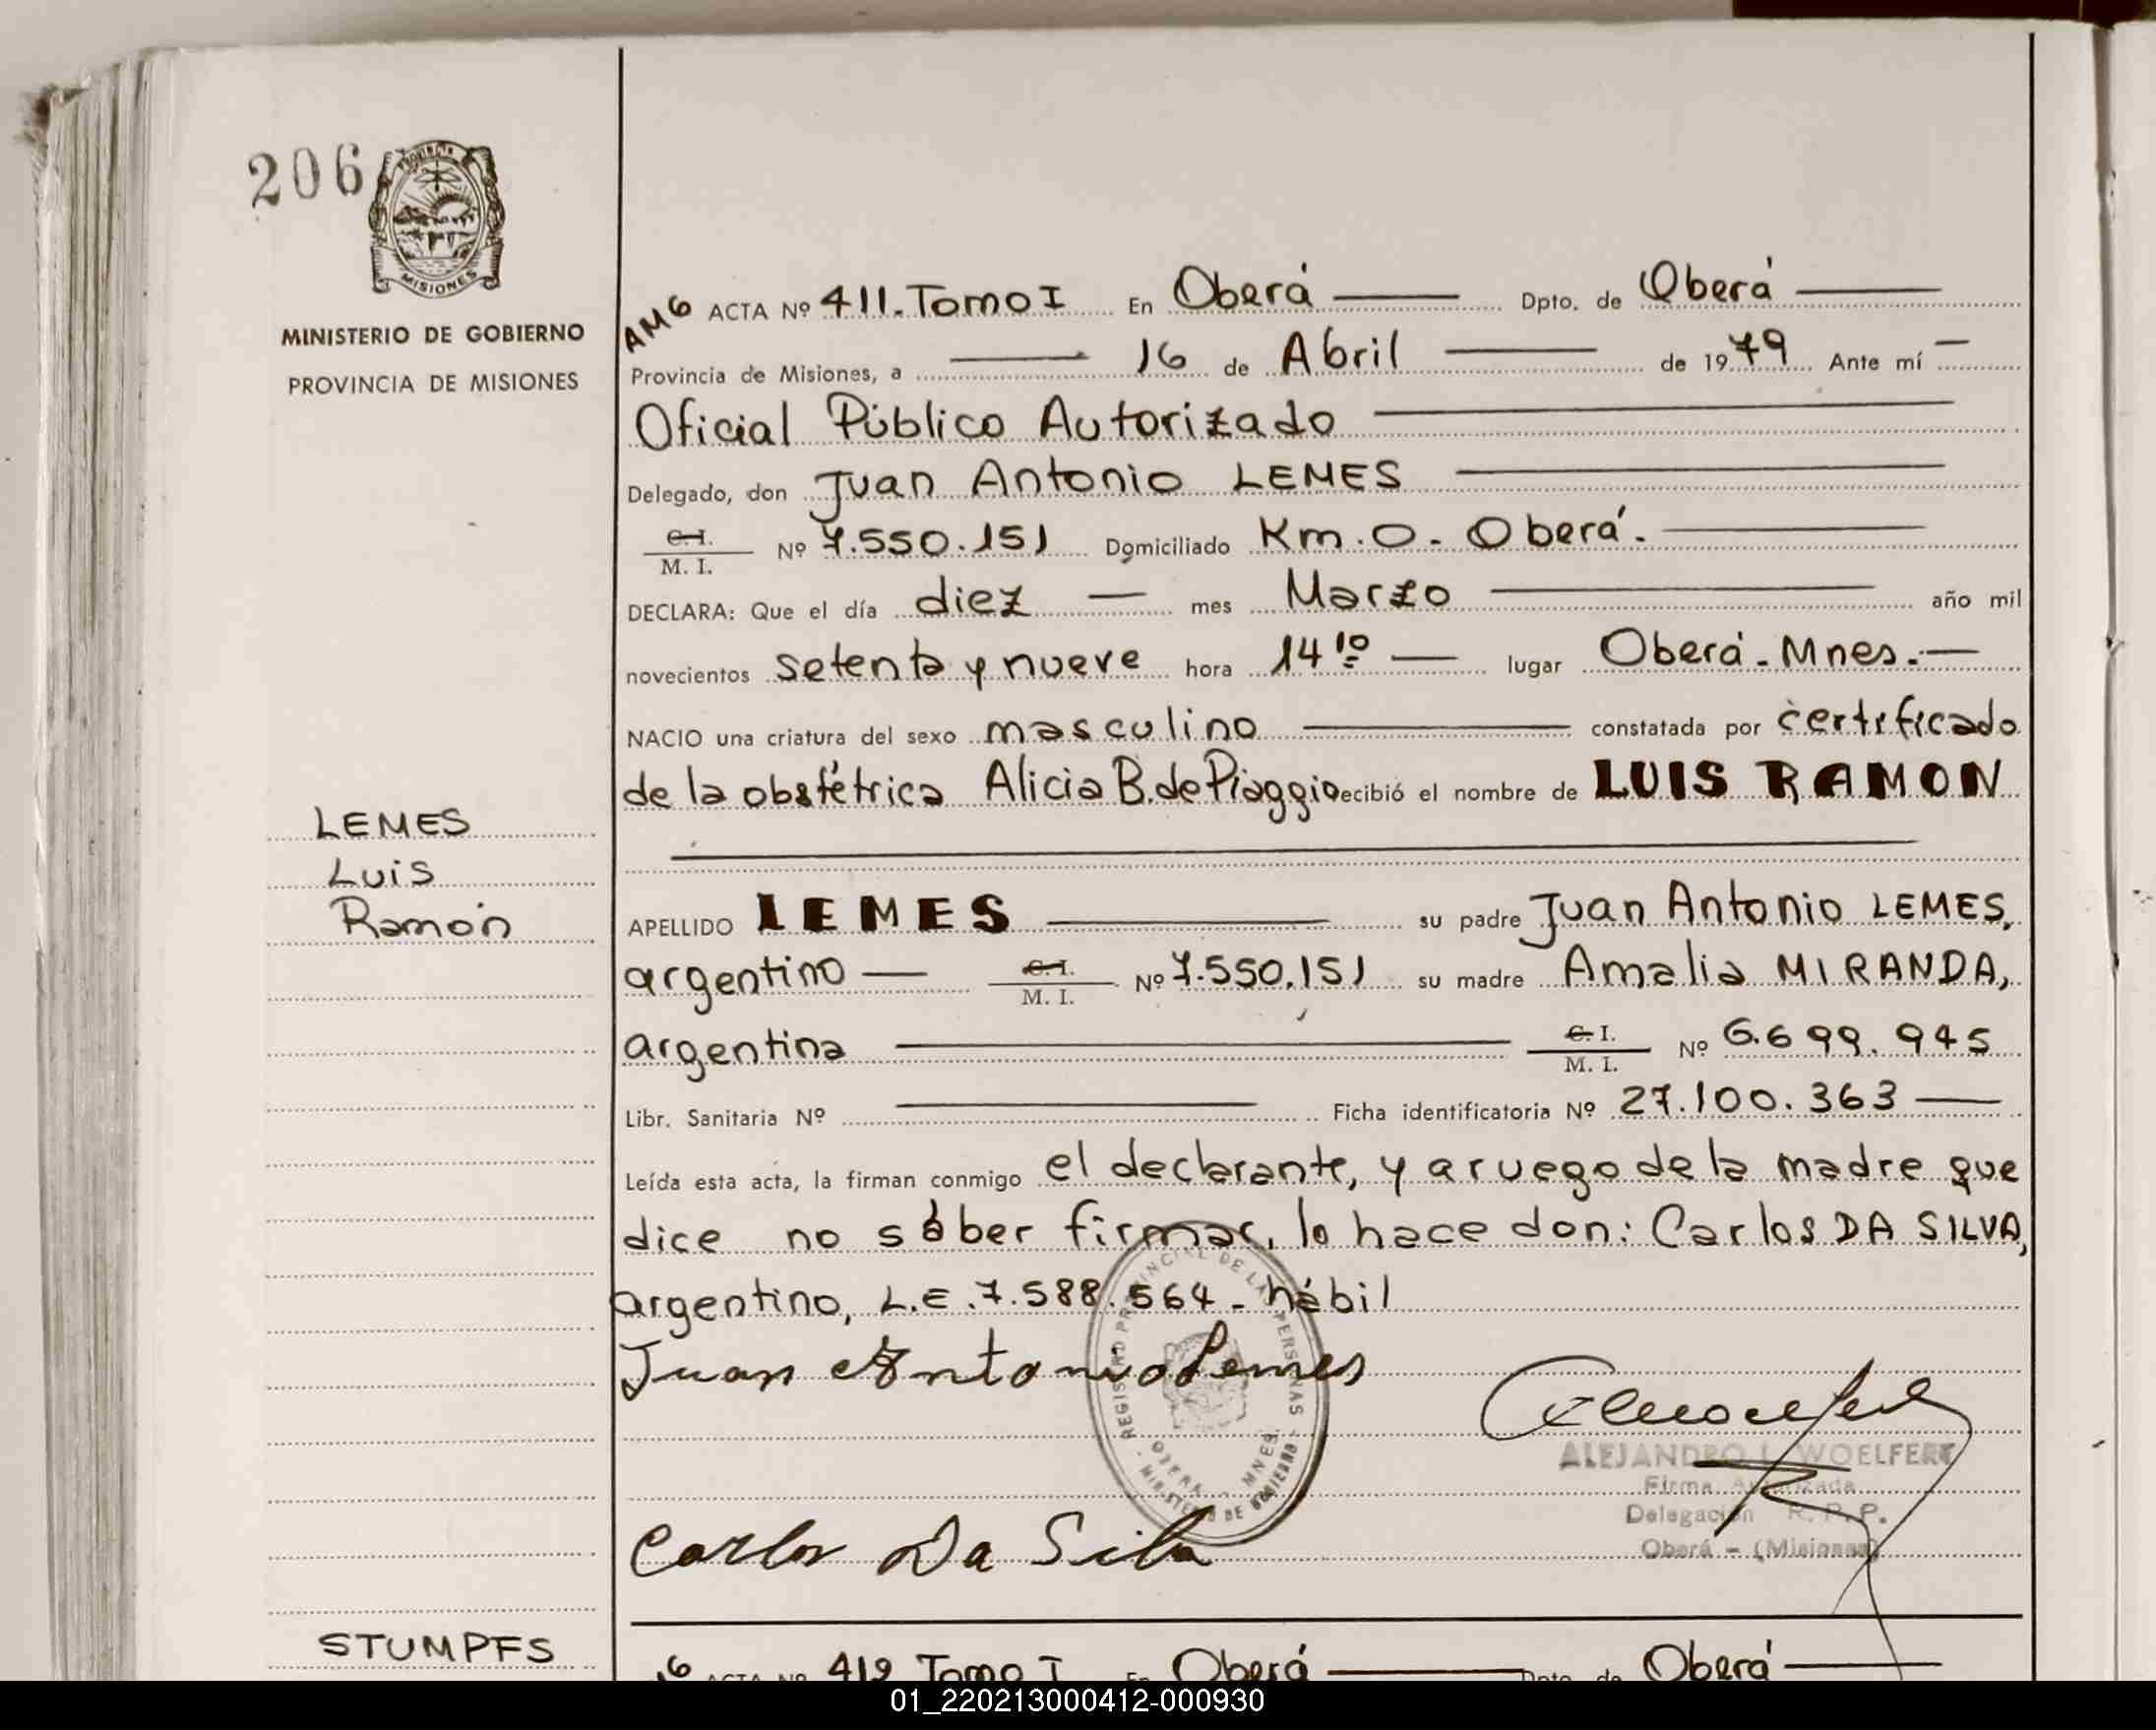 206
PROVINCIA
MISIONES
MINISTERIO DE GOBIERNO
PROVINCIA DE MISIONES
AMG ACTA Nº 411. Tomo I En Oberá Dpto. de Oberá
Provincia de Misiones, a 16 de Abril de 1979 Ante mí
Oficial Público Autorizado
Delegado, don Juan Antonio LEMES
C.I. M. I. Nº 7.550.151 Domiciliado Km. 0 - Oberá.
DECLARA: Que el día diez mes Marzo año mil
novecientos setenta y nueve hora 14 10 lugar Oberá - Mnes.
NACIO una criatura del sexo masculino constatada por certificado
de la obstétrica Alicia B. de Piaggio ecibió el nombre de LUIS RAMON
LEMES
Luis
Ramón
APELLIDO LEMES su padre Juan Antonio LEMES,
argentino C.I. M. I. Nº 7.550.151 su madre Amalia MIRANDA,
argentina C.I. M. I. Nº 6.699.945
Libr. Sanitaria Nº Ficha identificatoria Nº 27.100.363
Leída esta acta, la firman conmigo el declarante, y a ruego de la madre que
dice no sáber firmar, lo hace don: Carlos DA SILVA,
argentino, L.E. 7.588.564 - hábil
Juan Antonio Lemes
REGISTRO PROVINCIAL DE LAS PERSONAS
OBERA - MNES.
MINISTERIO DE GOBIERNO
ALEJANDRO L. WOELFERT
Firma Autorizada
Delegación R. P. P.
Oberá - (Misiones)
Carlos Da Silva
STUMPFS
ACTA Nº 412 Tomo I En Oberá Dpto. de Oberá
01_220213000412-000930